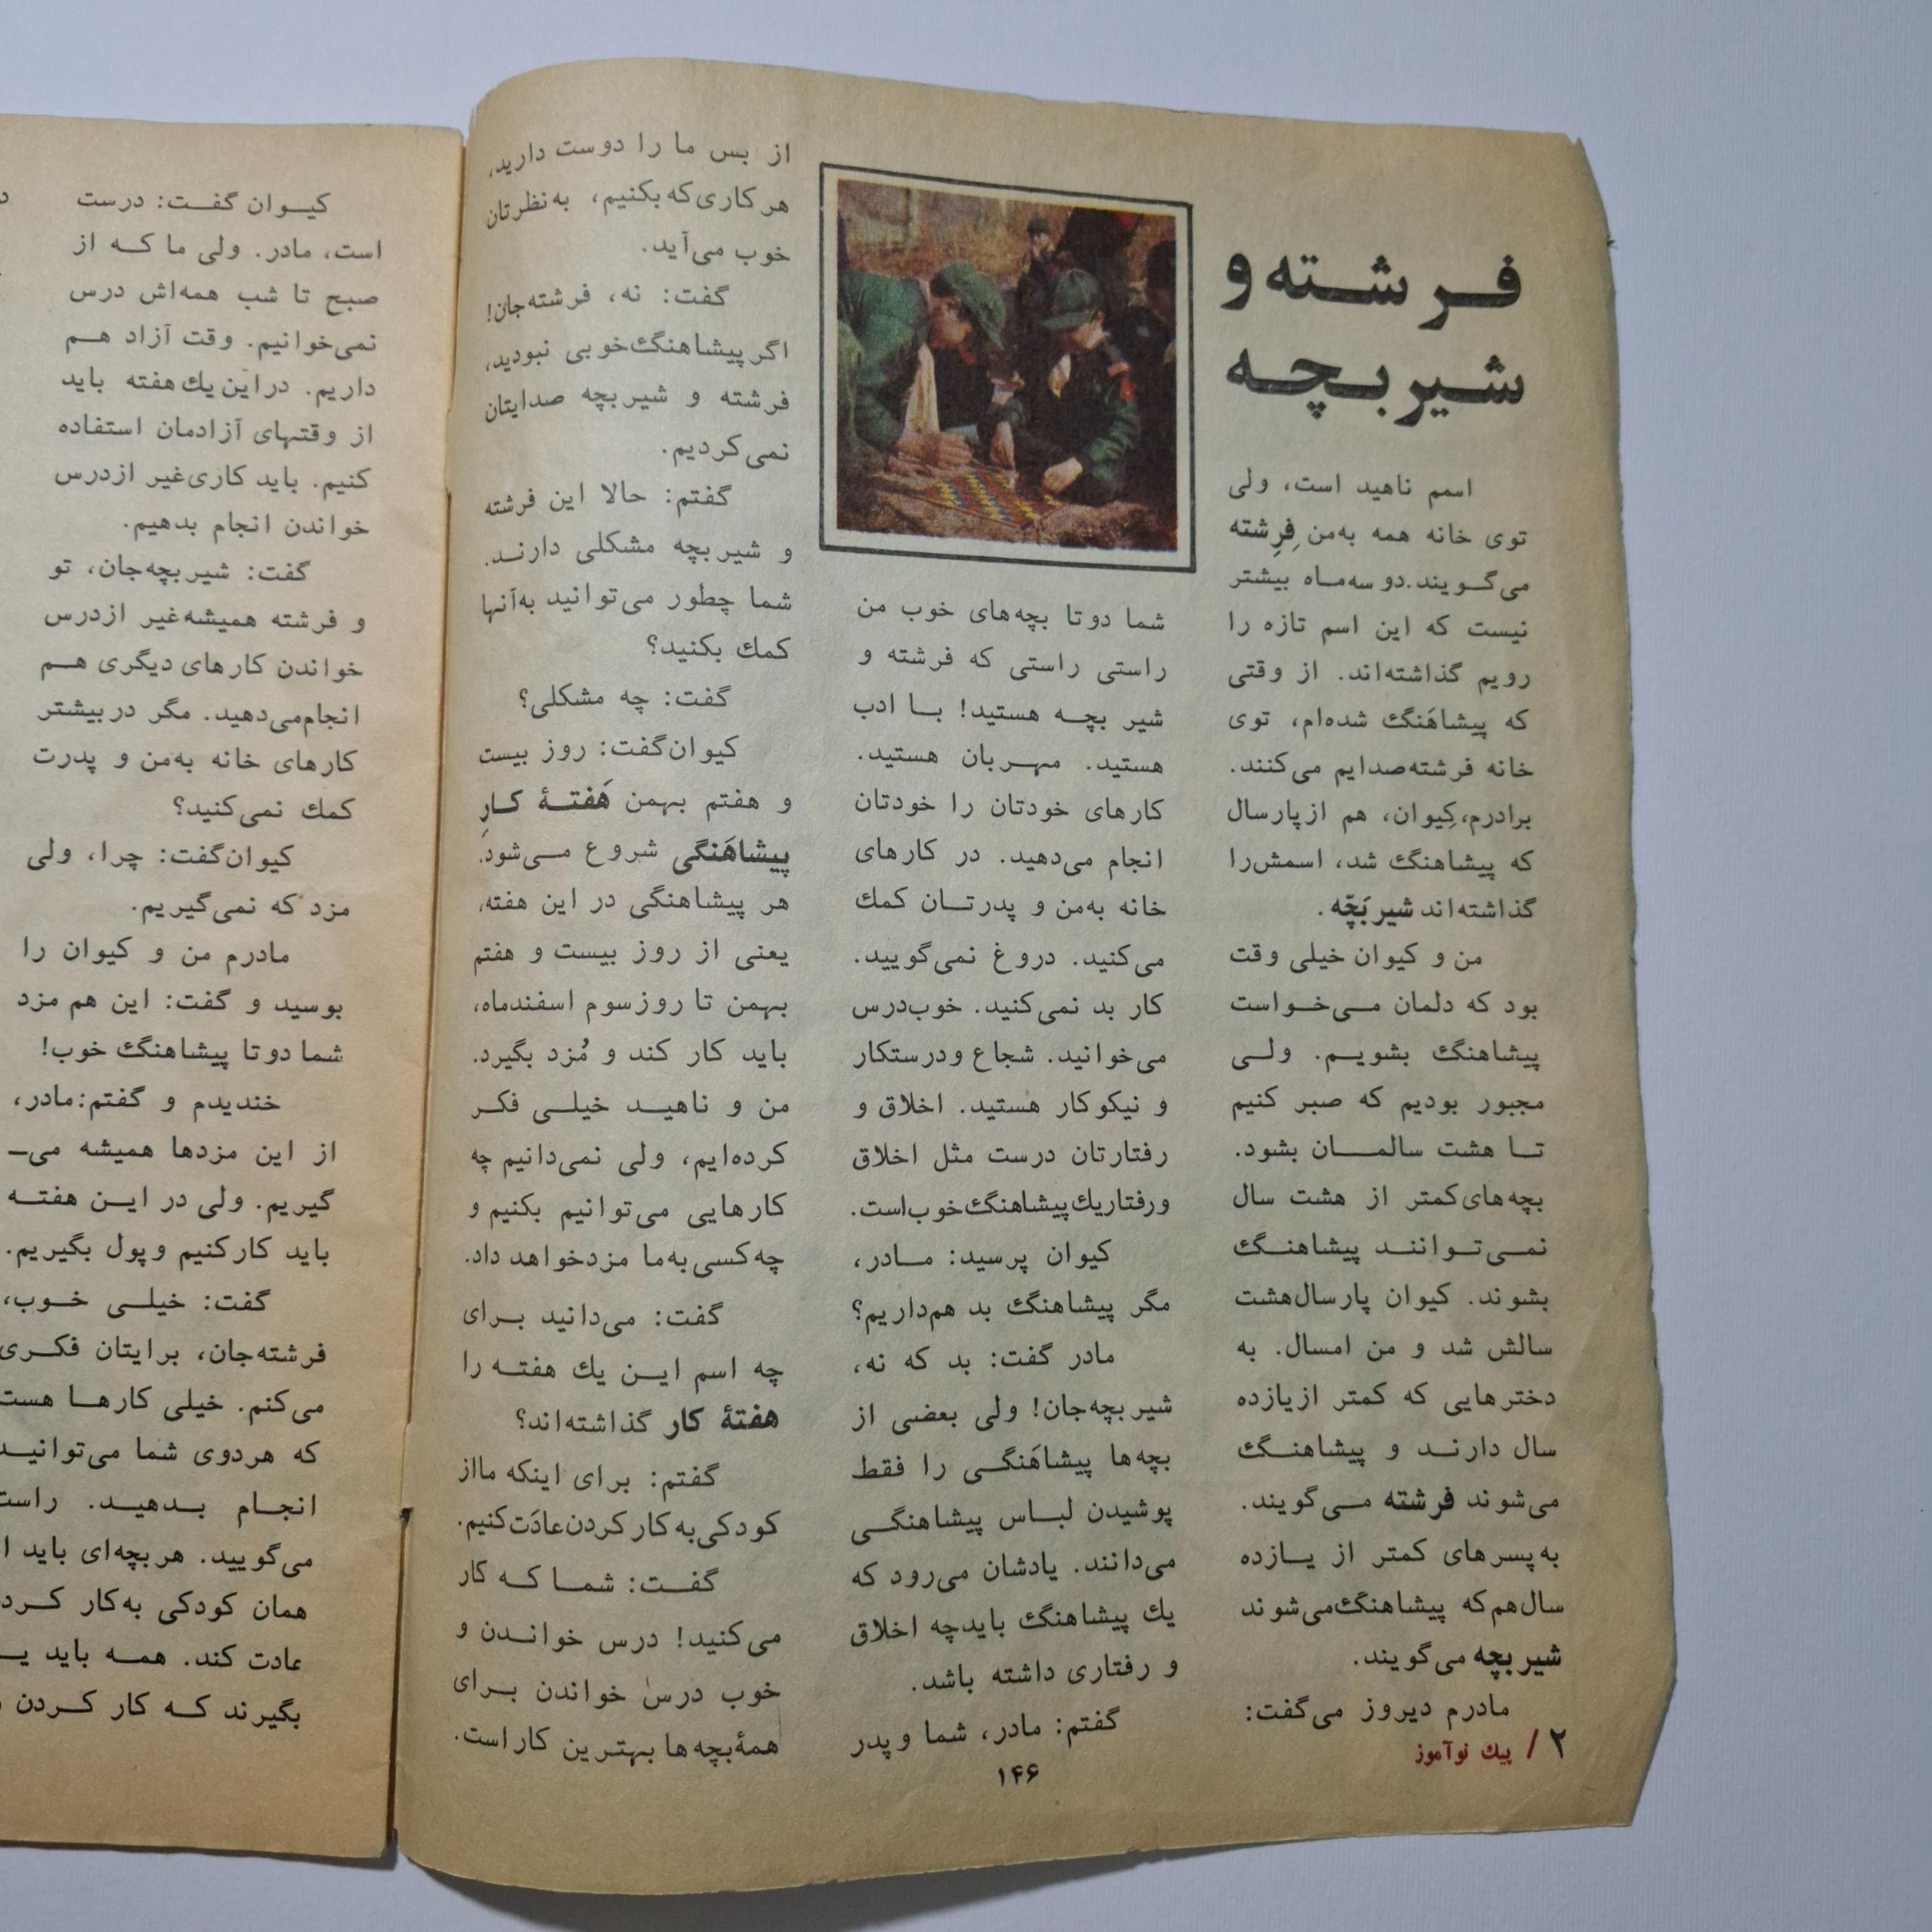 فرشته و
شیر بچه
اسمم ناهید است، ولی
توی خانه همه به‌من فِرِشته
می‌گویند. دو سه‌ماه بیشتر
نیست که این اسم تازه را
رویم گذاشته‌اند. از وقتی
که پیشاهَنگ شده‌ام، توی
خانه فرشته صدایم می‌کنند.
برادرم، کِیوان، هم از پارسال
که پیشاهنگ شد، اسمش را
گذاشته‌اند شیر بَچّه.
من و کیوان خیلی وقت
بود که دلمان می‌خواست
پیشاهنگ بشویم. ولی
مجبور بودیم که صبر کنیم
تا هشت سالمان بشود.
بچه‌های کمتر از هشت سال
نمی‌توانند پیشاهنگ
بشوند. کیوان پارسال هشت
سالش شد و من امسال. به
دخترهایی که کمتر از یازده
سال دارند و پیشاهنگ
می‌شوند فرشته می‌گویند.
به پسرهای کمتر از یازده
سال هم که پیشاهنگ می‌شوند
شیر بچه می‌گویند.
مادرم دیروز می‌گفت:
شما دوتا بچه‌های خوب من
راستی راستی که فرشته و
شیر بچه هستید! با ادب
هستید. مهربان هستید.
کارهای خودتان را خودتان
انجام می‌دهید. در کارهای
خانه به‌من و پدرتان کمك
می‌کنید. دروغ نمی‌گویید.
کار بد نمی‌کنید. خوب درس
می‌خوانید. شجاع و درستکار
و نیکوکار هستید. اخلاق و
رفتارتان درست مثل اخلاق
و رفتار یك پیشاهنگ خوب است.
کیوان پرسید: مادر،
مگر پیشاهنگ بد هم داریم؟
مادر گفت: بد که نه،
شیر بچه‌جان! ولی بعضی از
بچه‌ها پیشاهَنگی را فقط
پوشیدن لباس پیشاهنگی
می‌دانند. یادشان می‌رود که
یك پیشاهنگ باید چه اخلاق
و رفتاری داشته باشد.
گفتم: مادر، شما و پدر
از بس ما را دوست دارید،
هر کاری که بکنیم، به نظرتان
خوب می‌آید.
گفت: نه، فرشته‌جان!
اگر پیشاهنگ خوبی نبودید،
فرشته و شیر بچه صدایتان
نمی‌کردیم.
گفتم: حالا این فرشته
و شیر بچه مشکلی دارند.
شما چطور می‌توانید به‌آنها
کمك بکنید؟
گفت: چه مشکلی؟
کیوان گفت: روز بیست
و هفتم بهمن هَفتهٔ کارِ
پیشاهَنگی شروع می‌شود.
هر پیشاهنگی در این هفته،
یعنی از روز بیست و هفتم
بهمن تا روز سوم اسفندماه،
باید کار کند و مُزد بگیرد.
من و ناهید خیلی فکر
کرده‌ایم، ولی نمی‌دانیم چه
کارهایی می‌توانیم بکنیم و
چه کسی به‌ما مزد خواهد داد.
گفت: می‌دانید برای
چه اسم این یك هفته را
هفتهٔ کار گذاشته‌اند؟
گفتم: برای اینکه ما از
کودکی به کار کردن عادَت کنیم.
گفت: شما که کار
می‌کنید! درس خواندن و
خوب درس خواندن برای
همهٔ بچه‌ها بهترین کار است.
۲ / پیك نوآموز
۱۴۶
کیوان گفت: درست
است، مادر. ولی ما که از
صبح تا شب همه‌اش درس
نمی‌خوانیم. وقت آزاد هم
داریم. در این یك هفته باید
از وقتهای آزادمان استفاده
کنیم. باید کاری غیر از درس
خواندن انجام بدهیم.
گفت: شیر بچه‌جان، تو
و فرشته همیشه غیر از درس
خواندن کارهای دیگری هم
انجام می‌دهید. مگر در بیشتر
کارهای خانه به‌من و پدرت
کمك نمی‌کنید؟
کیوان گفت: چرا، ولی
مزد که نمی‌گیریم.
مادرم من و کیوان را
بوسید و گفت: این هم مزد
شما دوتا پیشاهنگ خوب!
خندیدم و گفتم: مادر،
از این مزدها همیشه می‌ـ
گیریم. ولی در این هفته
باید کار کنیم و پول بگیریم.
گفت: خیلی خوب،
فرشته‌جان، برایتان فکری
می‌کنم. خیلی کارها هست
که هردوی شما می‌توانید
انجام بدهید. راست
می‌گویید. هر بچه‌ای باید
همان کودکی به کار
عادت کند. همه باید
بگیرند که کار کردن